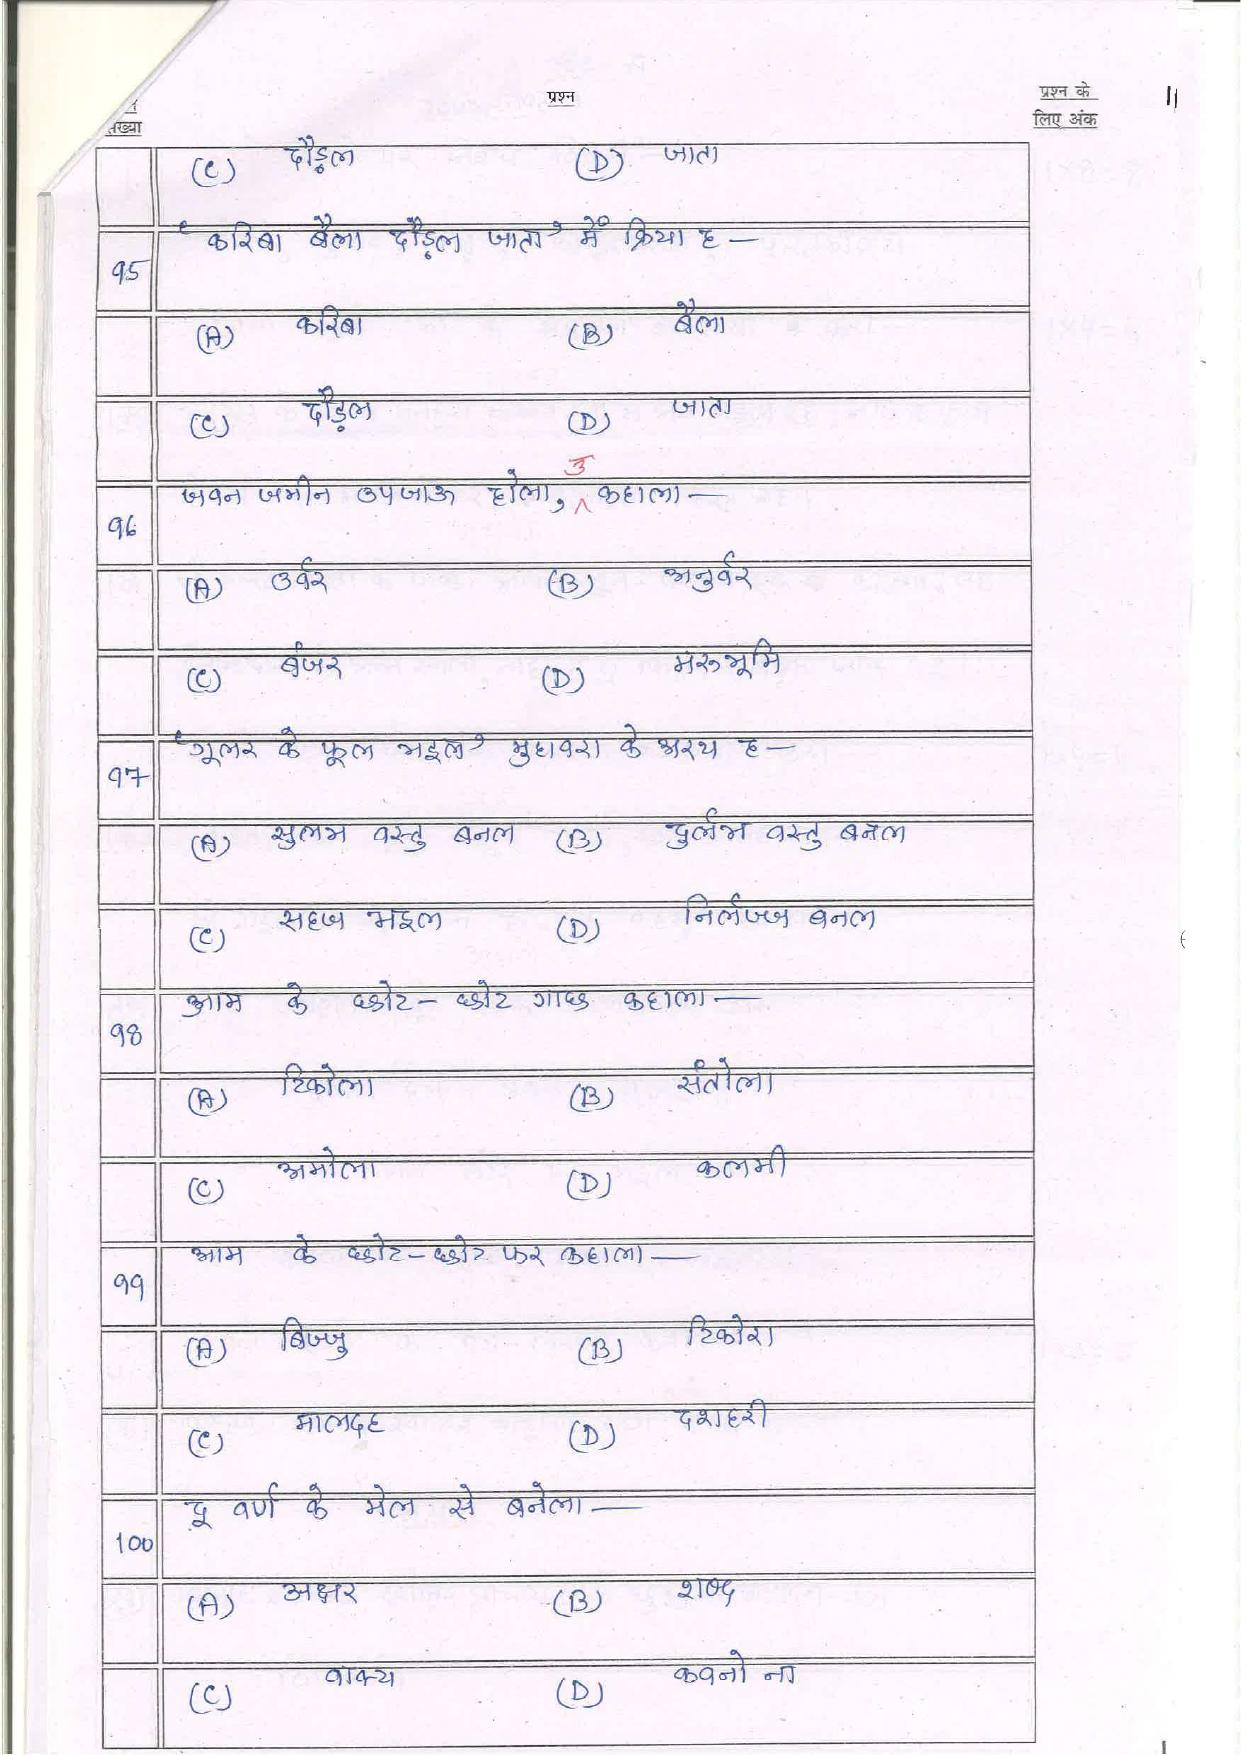 प्रश्न
प्रश्न के
लिए अंक
11
संख्या
(C) दौड़ल (D) जाता
95 'करिबा बैला दौड़ल जाता' में क्रिया ह —
(A) करिबा (B) बैला
(C) दौड़ल (D) जाता
96 जवन जमीन उपजाऊ होला, उ कहाला —
(A) उर्वर (B) अनुर्वर
(C) बंजर (D) मरुभूमि
97 'गूलर के फूल भइल' मुहावरा के अरथ ह —
(A) सुलभ वस्तु बनल (B) दुर्लभ वस्तु बनल
(C) सहज भइल (D) निर्लज्ज बनल
98 आम के छोट-छोट गाछ कहाला —
(A) टिकोला (B) संतोला
(C) अमोला (D) कलमी
99 आम के छोट-छोट फर कहाला —
(A) बिज्जु (B) टिकोरा
(C) मालदह (D) दशहरी
100 दू वर्ण के मेल से बनेला —
(A) अक्षर (B) शब्द
(C) वाक्य (D) कवनो ना